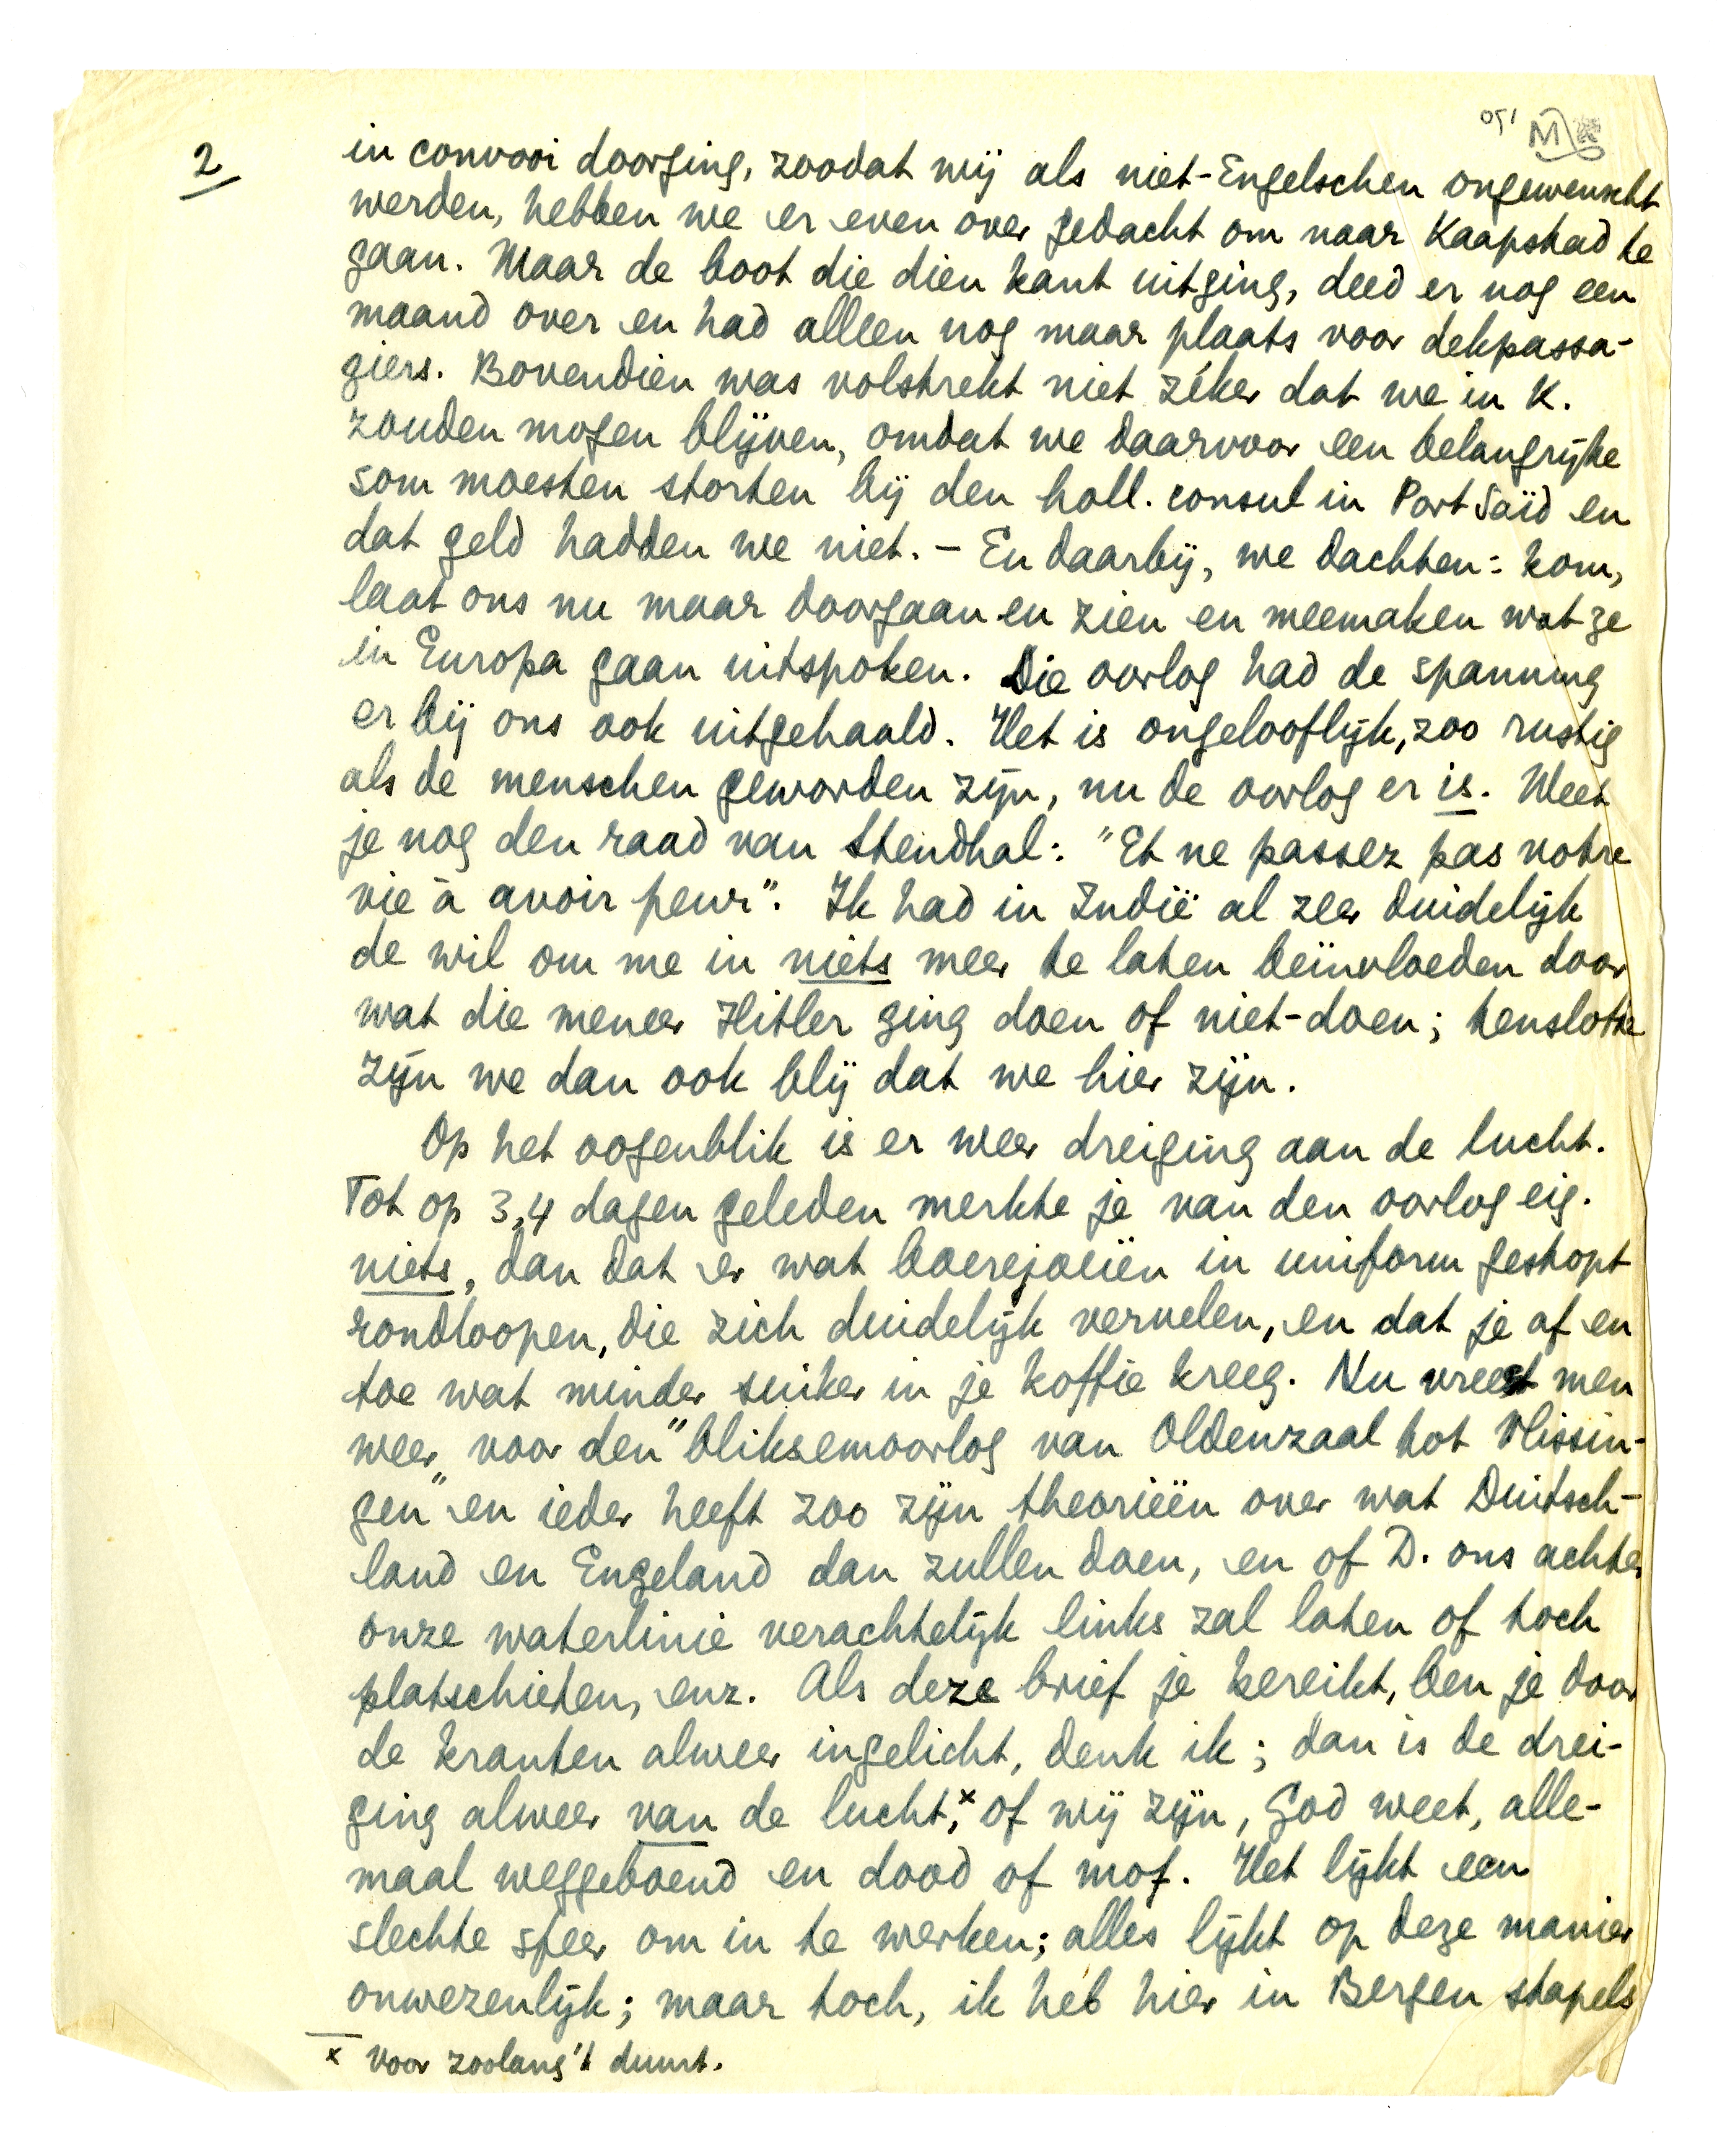 2
in convooi doorging, zoodat wij als niet-Engelschen ongewenscht
werden, hebben we er even over gedacht om naar Kaapstad te
gaan. Maar de boot die dien kant uitging, deed er nog een
maand over en had alleen nog maar plaats voor dekpassa-
giers. Bovendien was volstrekt niet zéker dat we in K.
zouden mogen blijven, omdat we daarvoor een belangrijke
som moesten storten bij den holl. consul in Port Saïd en
dat geld hadden we niet. – En daarbij, we dachten: kom,
laat ons nu maar doorgaan en zien en meemaken wat ze
in Europa gaan uitspoken. Die oorlog had de spanning
er bij ons ook uitgehaald. Het is ongelooflijk, zoo rustig
als de menschen geworden zijn, nu de oorlog er is. Weet
je nog den raad van Stendhal: "Et ne passez pas votre
vie à avoir peur". Ik had in Indië al zeer duidelijk
de wil om me in niets meer te laten beïnvloeden door
wat die meneer Hitler ging doen of niet-doen; tenslotte
zijn we dan ook blij dat we hier zijn.
Op het oogenblik is er weer dreiging aan de lucht.
Tot op 3,4 dagen geleden merkte je van den oorlog eig.
niets, dan dat er wat boerejoeiën in uniform gestopt
rondloopen, die zich duidelijk vervelen, en dat je af en
toe wat minder suiker in je koffie kreeg. Nu vreest men
weer voor den "bliksemoorlog van Oldenzaal tot Vlissin-
gen" en ieder heeft zoo zijn theorieën over wat Duitsch-
land en Engeland dan zullen doen, en of D. ons achter
onze waterlinie verachtelijk links zal laten of toch
platschieten, enz. Als deze brief je bereikt, ben je door
de kranten alweer ingelicht, denk ik; dan is de drei-
ging alweer van de lucht,x of wij zijn, God weet, alle-
maal weggeboend en dood of mof. Het lijkt een
slechte sfeer om in te werken; alles lijkt op deze manier
onwezenlijk; maar toch, ik heb hier in Bergen stapels
x voor zoolang 't duurt.